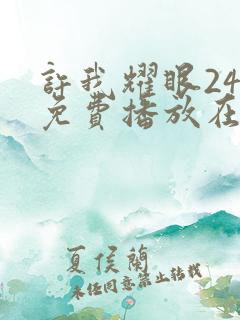 許我耀眼24
免費播放在
夏侯蘭
未經同意禁止轉載